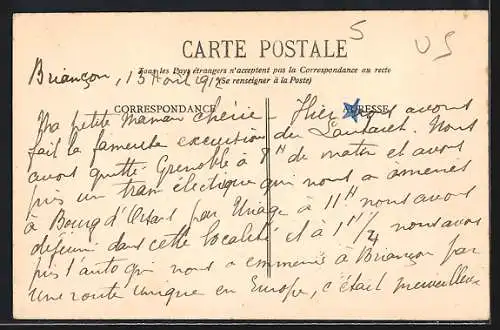 5
US
CARTE POSTALE
Tous les Pays étrangers n'acceptent pas la Correspondance au recto
(Se renseigner à la Poste)
Briançon, 15 Août
CORRESPONDANCE
ADRESSE
Ma petite Maman chérie - Hier nous avons
fait la fameuse excursion du Lautaret. Nous
avons quitté Grenoble à 8H de matin et avons
pris un tram électrique qui nous a amenés
à Bourg d'Oisans par Uriage à 11H nous avons
déjeuné dans cette localité et à 1H 1/4 nous avons
pris l'auto qui nous a emmené à Briançon par
une route unique en Europe, c'était merveilleux